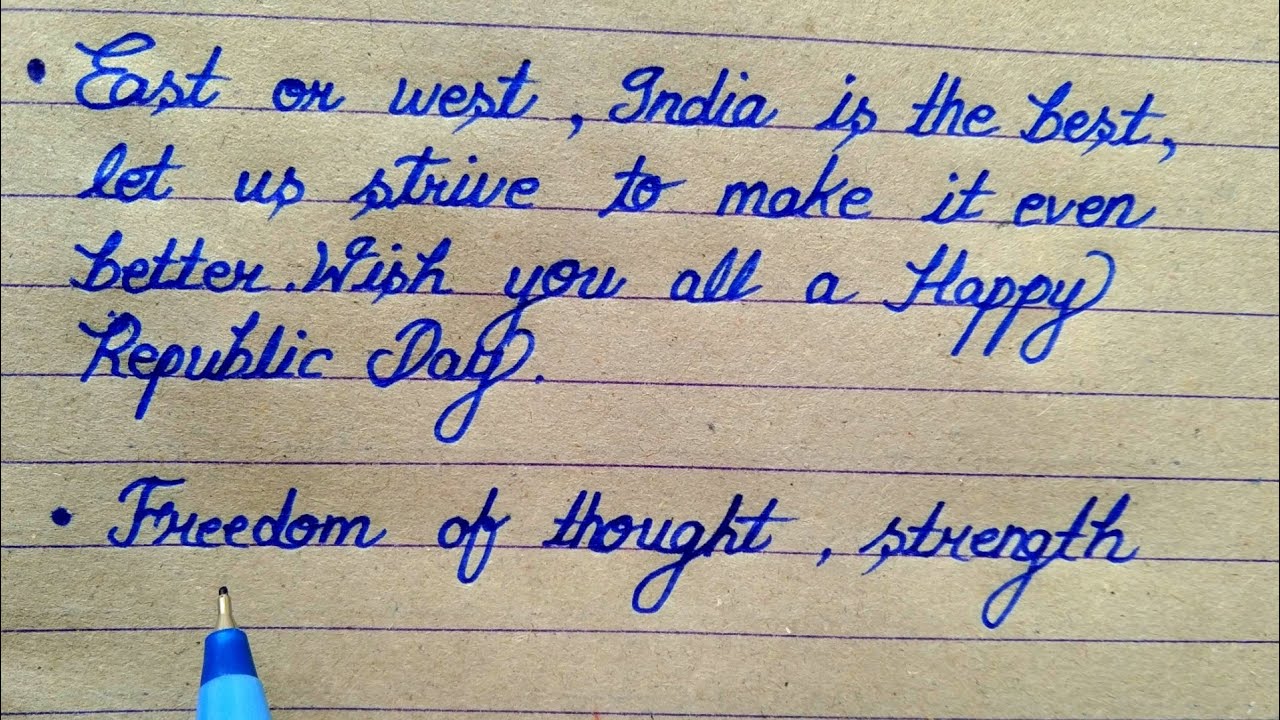 • East or west, India is the best,
let us strive to make it even
better. Wish you all a Happy
Republic Day.
• Freedom of thought, strength